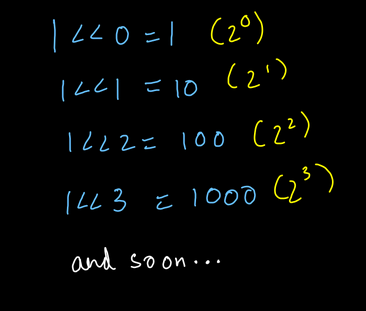 1<<0 = 1 (2⁰)
1<<1 = 10 (2¹)
1<<2 = 100 (2²)
1<<3 = 1000 (2³)
and soon...